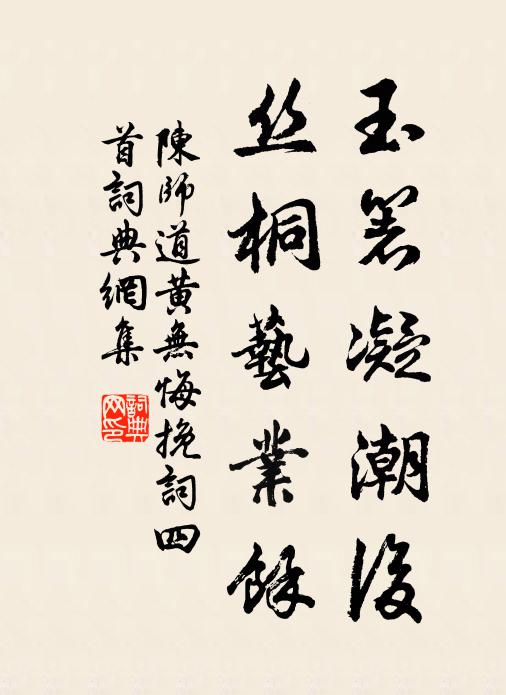 玉箸凝潮後
丝桐藝業餘
陳師道黄無悔挽詞四
首詞典網集
詞典
网印